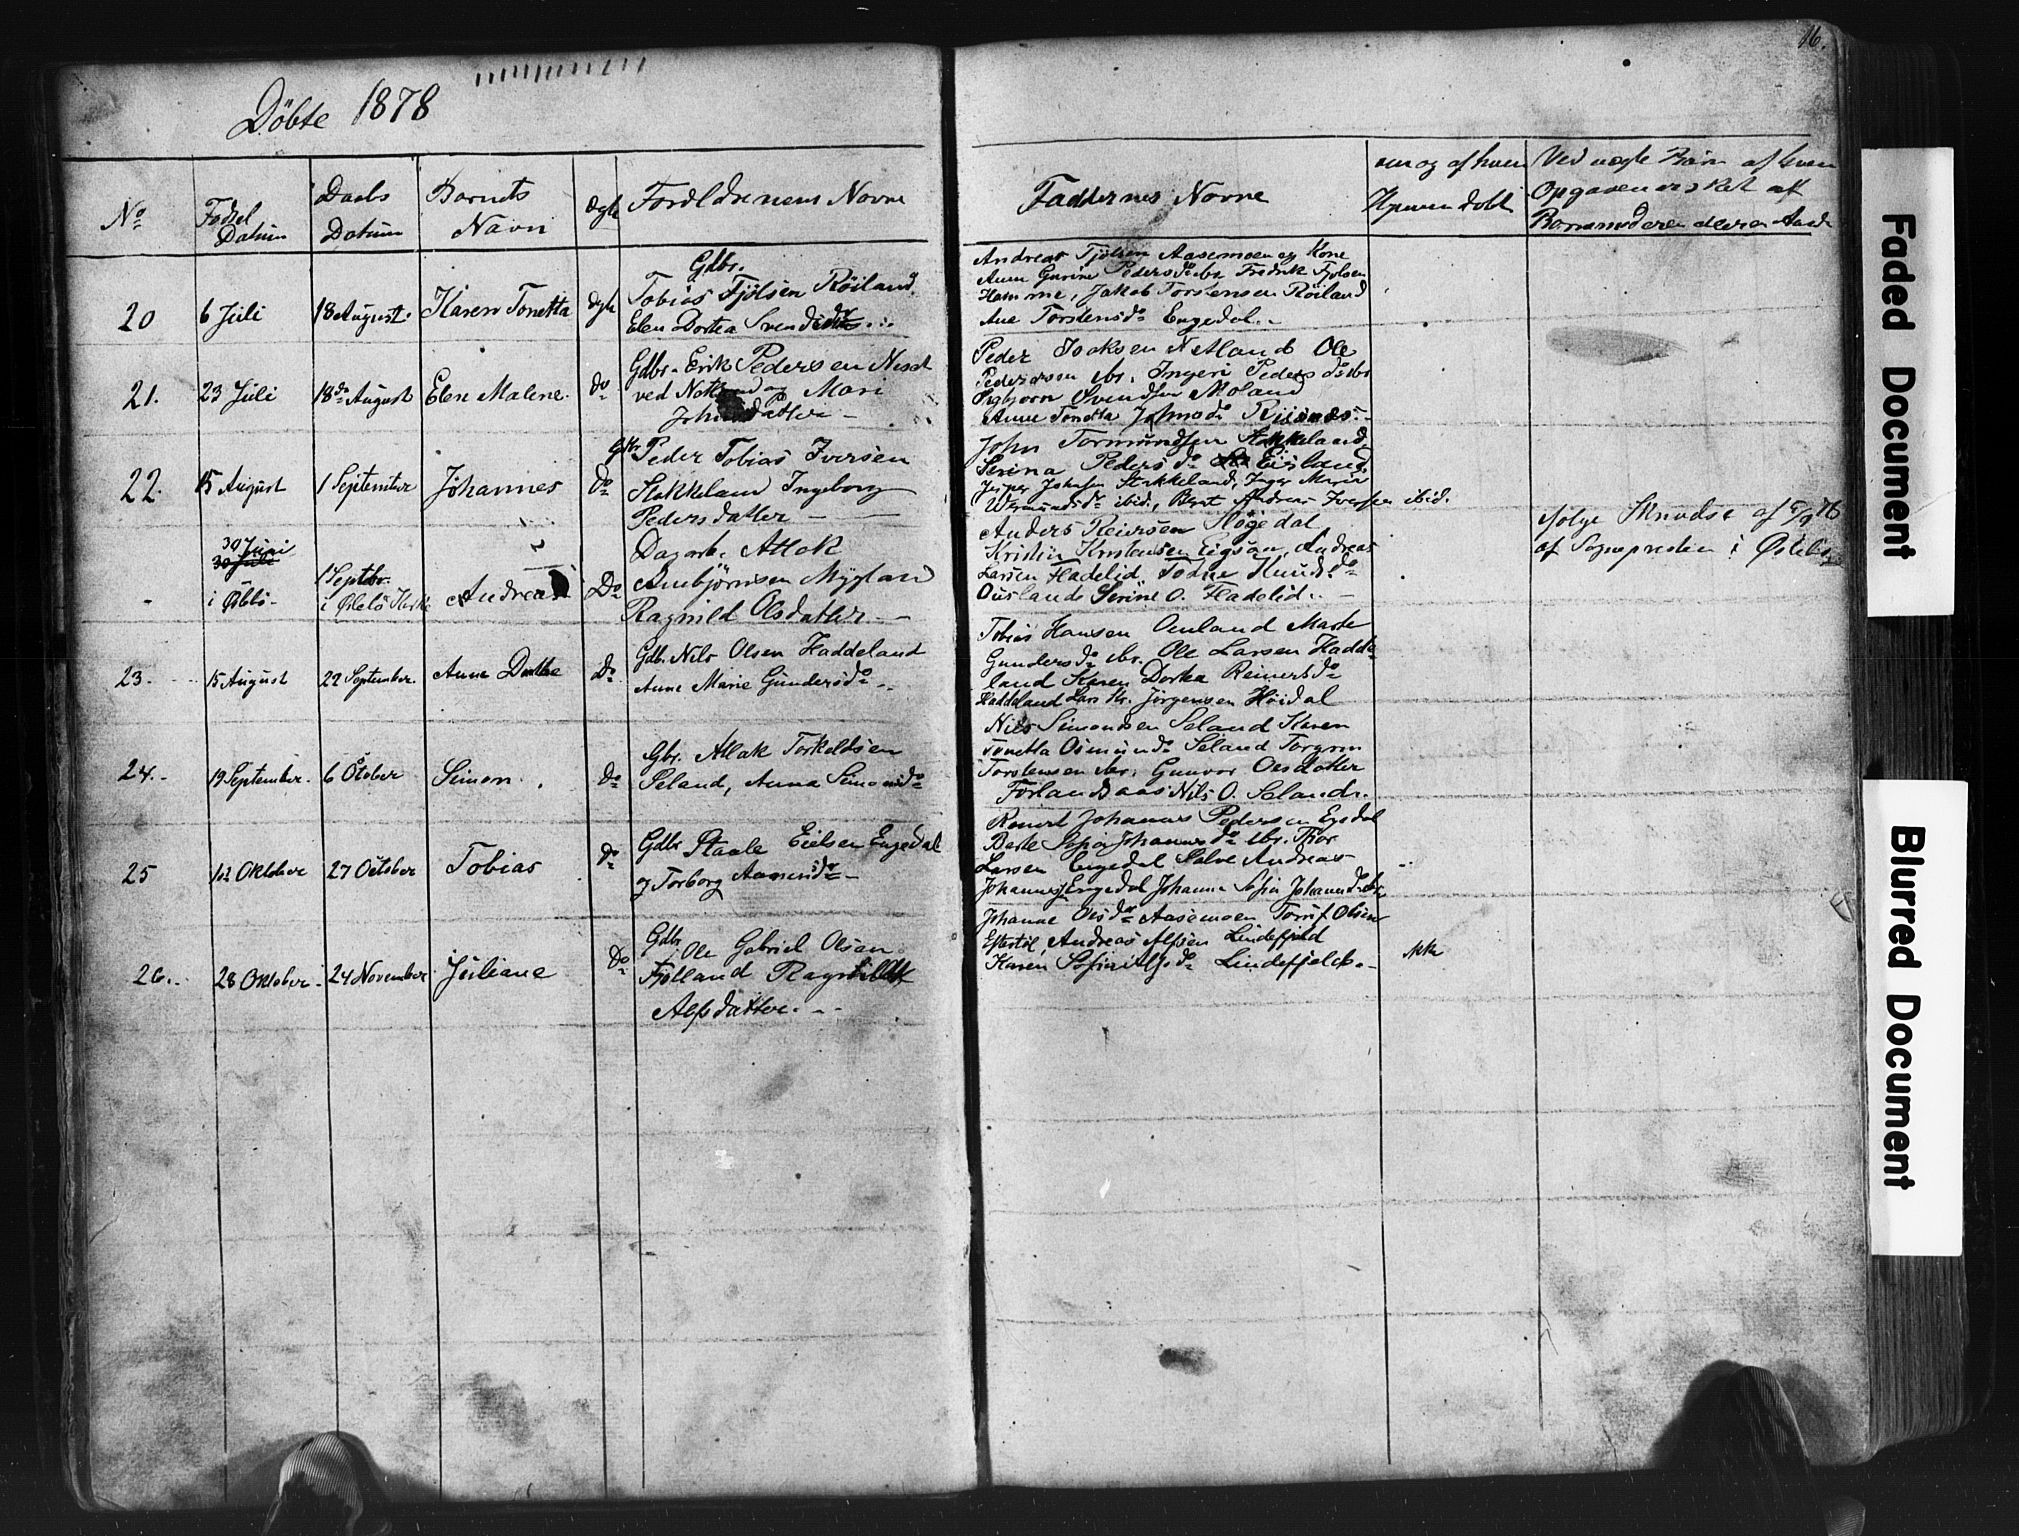 16.
Döbte 1878
No
Födsel Datum
Daabs Datum
Barnets Navn
Ægte
Forældrenens Navne
Faddernes Navne
om og af hvem Hjemmedöbt
Ved uægte Börn af hvem
Opgaven er sket af
Barnemoderen eller en Anden
20
6 Juli
18 August
Karen Tonetta
ægte
Gdbr.
Tobias Fjölsen Röiland
Elen Dortea Svendsdtr
Andreas Fjölsen Aasemoen og Kone
Anne Gurine Pedersdo ibr Fredrik Fjölsen
Homme, Jakob Torstensen Röiland
Ane Torstensdo Engedal
21.
23 Juli
18de August
Elen Malene
do
Gdbr. Erik Pedersen
ved og Mari
datter
Peder Isaksen Netland Ole
Pedersen ibr. Ingeri Pedersdo ibr
Sigbjorn Svendsen Moland
Anne Tonetta Johnsdo Risnes
22.
15 August
1 September
Johannes
do
Gbr. Peder Tobias Iversen
Stakkeland Ingeborg
Pedersdatter
John Tormundsen Stakkeland
Serina Pedersdo Eisland
Jesper Johnsen Stakkeland, Inger Maria
ibid., Berte Andrea Iversen ibid.
30 Juni
30 Juli
i Öblö
1 Septbr.
i Öslebö Kirke
Andreas
Do
Dagarb. Atlak
Anebjörnsen Mygland
Ragnild Olsdatter
Anders Reiersen Högedal
Kristin Kristensen Eigsaa, Andreas
Larsen Hadelid, Tobine Knudsdo
Ousland Serine O. Hadelid
ifölge Skrivelse af
af Sognepresten i Öslebö
23.
15 August
22 September
Anne Dorthe
Do
Gdb. Nils Olsen Haddeland
Anne Marie Gundersdo
Tobias Hansen Omland Marte
Gundersdo ibr. Ole Larsen Hadde-
land Karen Dorthea Reinersdo
Haddeland Lars Kr. Jörgensen Höidal
24.
19 September
6 Otober
Simon
do
Gbr. Atlak Torkeldsen
Seland, Anna Simonsdo
Nils Simonsen Seland Karen
Tonetta Osmundsdo Seland Torgrim
Torstensen ibr. Gunvor Olsdatter
Förlandsaas Nils O. Seland
25
12 Oktober
27 October
Tobias
do
Gdbr Staale Eielsen Engedal
og Torborg Aanensdo
Johannes Pedersen Egedal
Berte Sofie Johannesdo ibr. Thor
Larsen Engedal Salve Andreas
Johannesen Engedal Johanne Sofie Johannesdo
26.
28 Oktober
24 November
Juliane
Do
Gdbr
Ole Gabriel Olsen
Fjölland Ragnild
Alfsdatter
Johanne Olsdo Aasemoen Torrif Olsen
Eftestöl Andreas Alfsen Lindefjeld
Karen Sofie Alfsdo Lindefjeld
ikke
Faded Document
Blurred Document